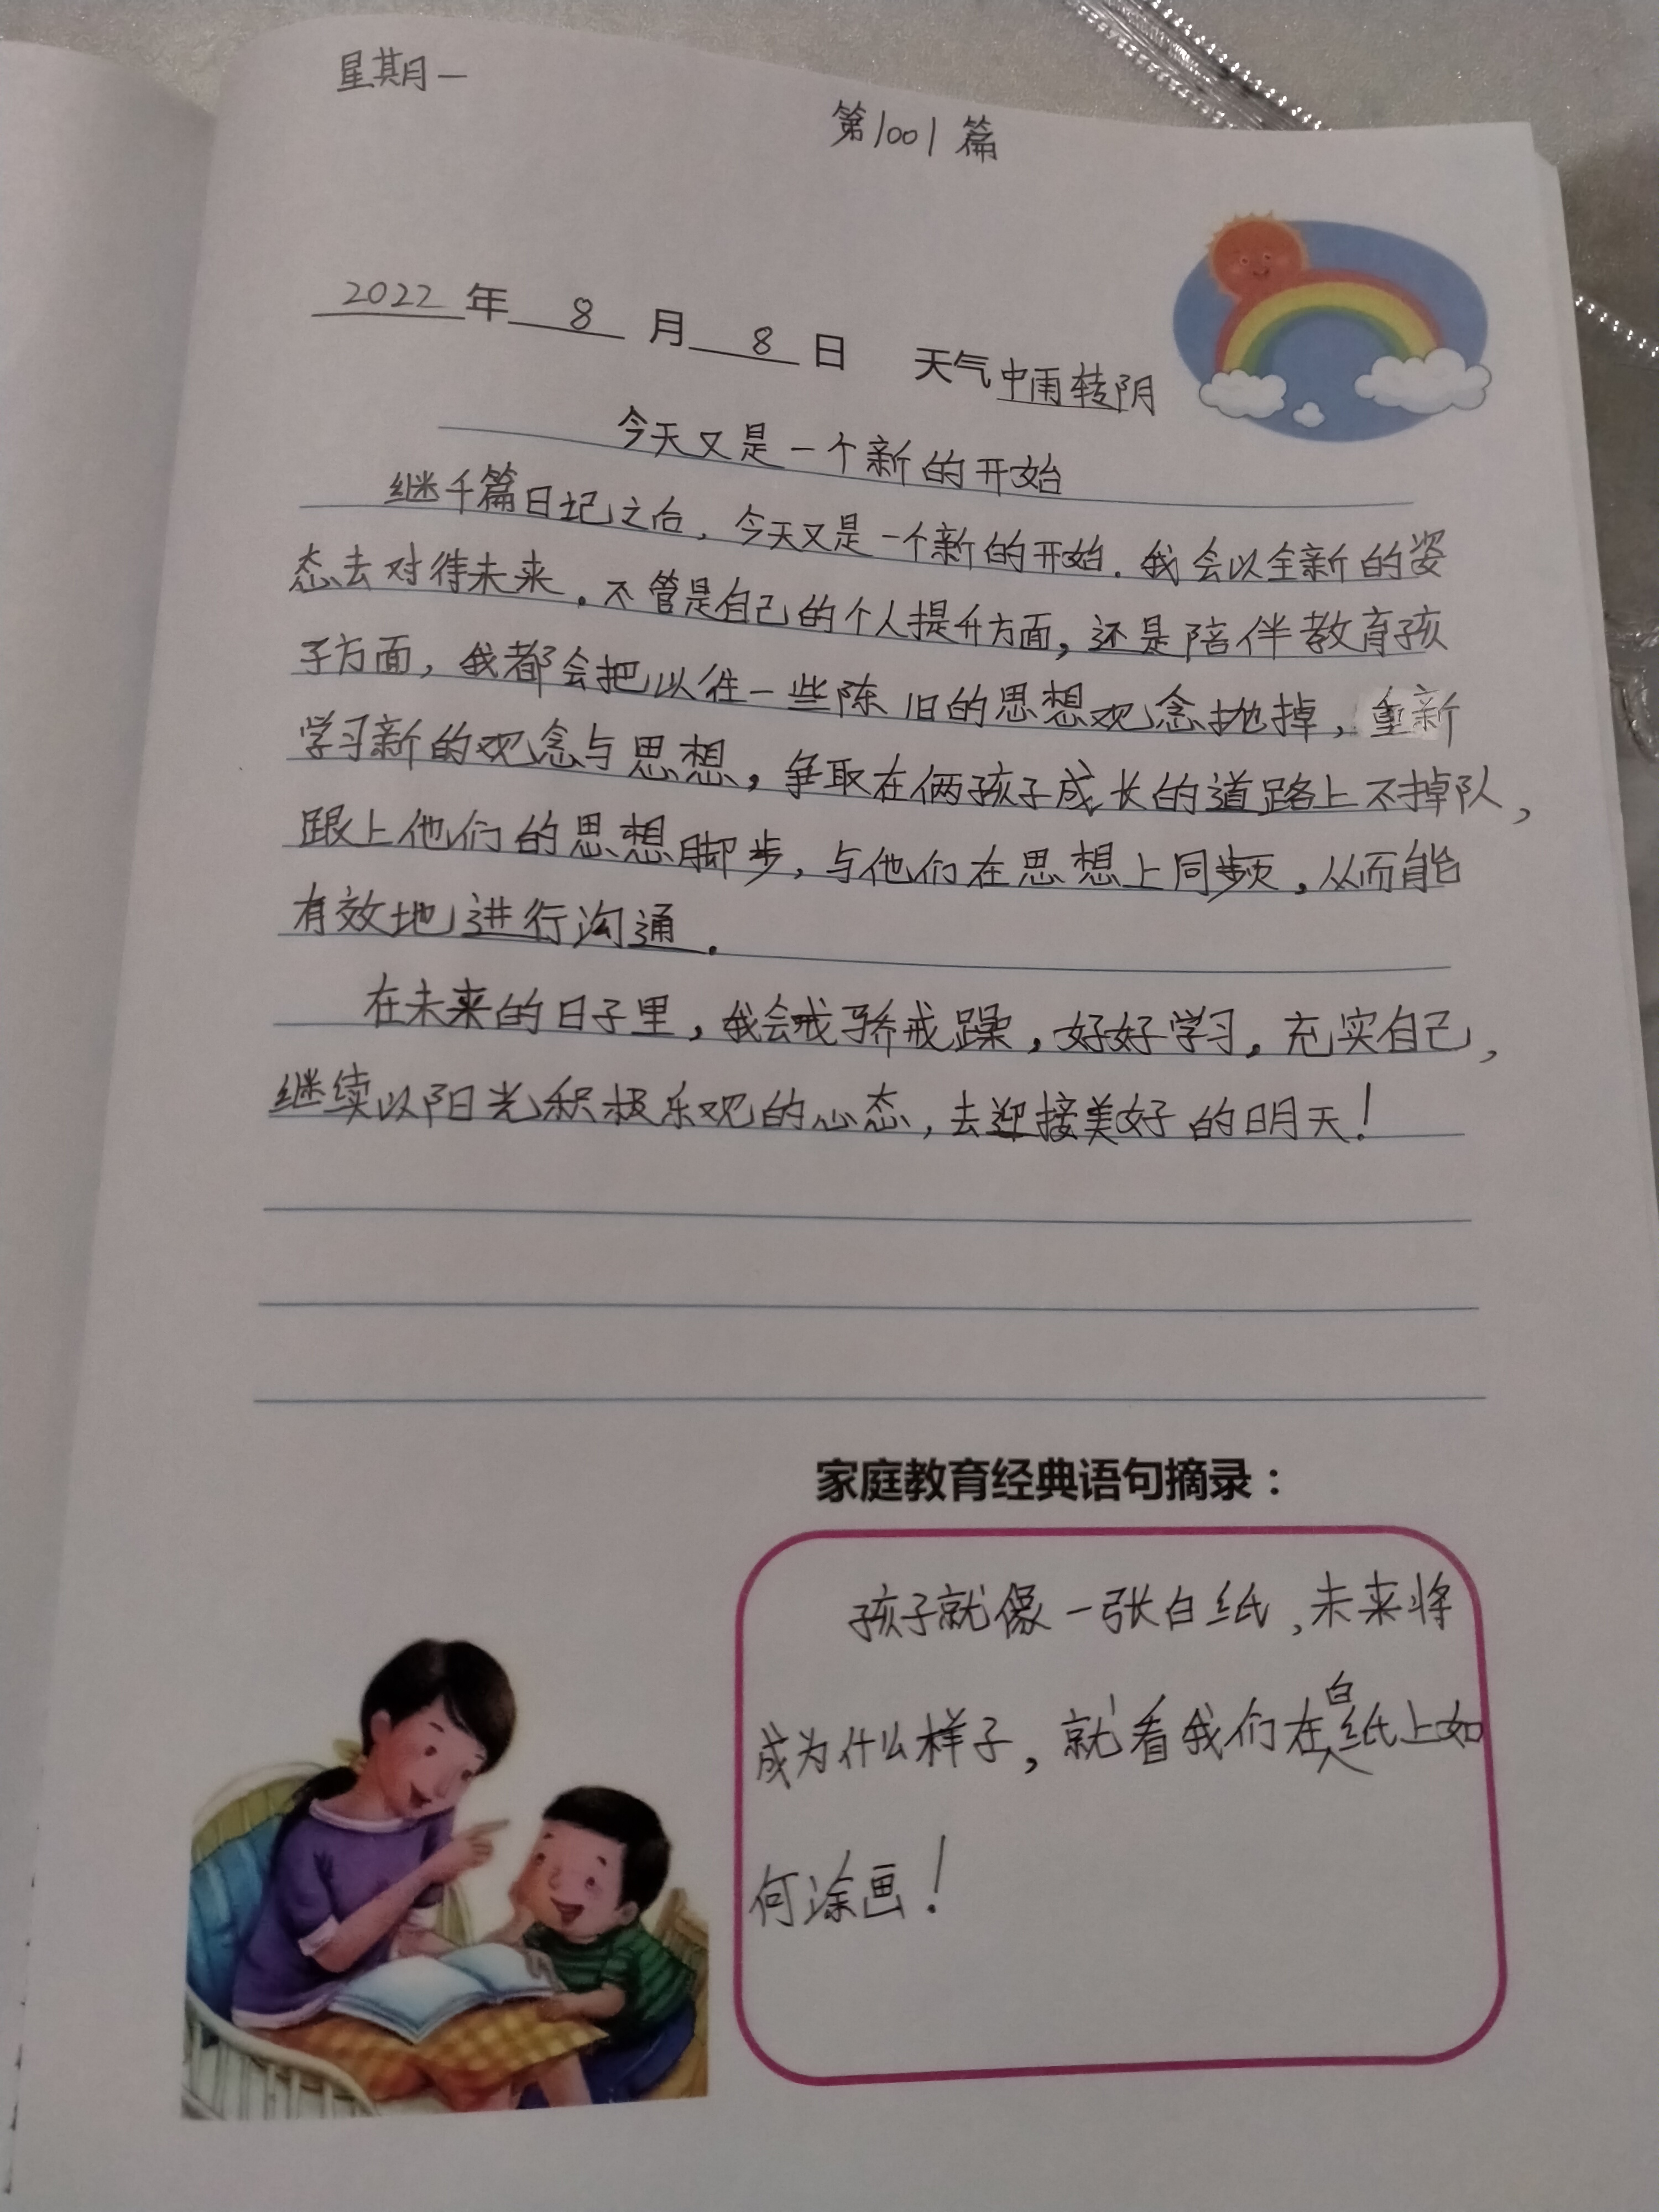 星期一
第1001篇
2022年 8 月 8 日 天气中雨转阴
今天又是一个新的开始
继千篇日记之后，今天又是一个新的开始.我会以全新的姿
态去对待未来。不管是自己的个人提升方面，还是陪伴教育孩
子方面，我都会把以往一些陈旧的思想观念抛掉，重新
学习新的观念与思想，争取在俩孩子成长的道路上不掉队，
跟上他们的思想脚步，与他们在思想上同频，从而能
有效地进行沟通.
在未来的日子里，我会戒骄戒躁，好好学习，充实自己，
继续以阳光积极乐观的心态，去迎接美好的明天！
家庭教育经典语句摘录：
孩子就像一张白纸，未来将
成为什么样子，就看我们在白纸上如
何涂画！